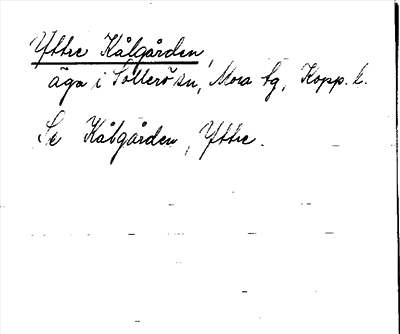 Yttre Kålgården,
äga i Sollerö sn, Mora tg, Kopp. l.
Se Kålgården, Yttre.